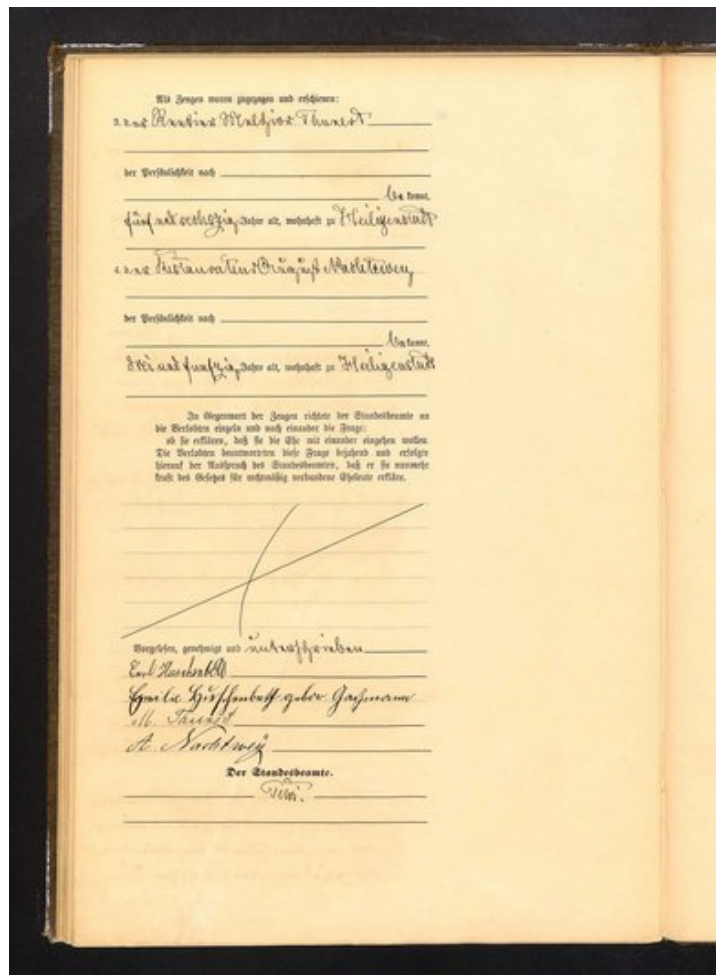 Als Zeugen waren zugezogen und erschienen:
3. der Rentier Melchior Thunert
der Persönlichkeit nach
be kannt,
fünf und sechszig Jahre alt, wohnhaft zu Heiligenstadt
4. der Restaurateur August Nachtwey
der Persönlichkeit nach
be kannt,
drei und fünfzig Jahre alt, wohnhaft zu Heiligenstadt
In Gegenwart der Zeugen richtete der Standesbeamte an
die Verlobten einzeln und nach einander die Frage:
ob sie erklären, daß sie die Ehe mit einander eingehen wollen.
Die Verlobten beantworteten diese Frage bejahend und erfolgte
hierauf der Ausspruch des Standesbeamten, daß er sie nunmehr
kraft des Gesetzes für rechtmäßig verbundene Eheleute erkläre.
Vorgelesen, genehmigt und unterschrieben
Hirschenbett gebor.
M. Thunert
A. Nachtwey
Der Standesbeamte.